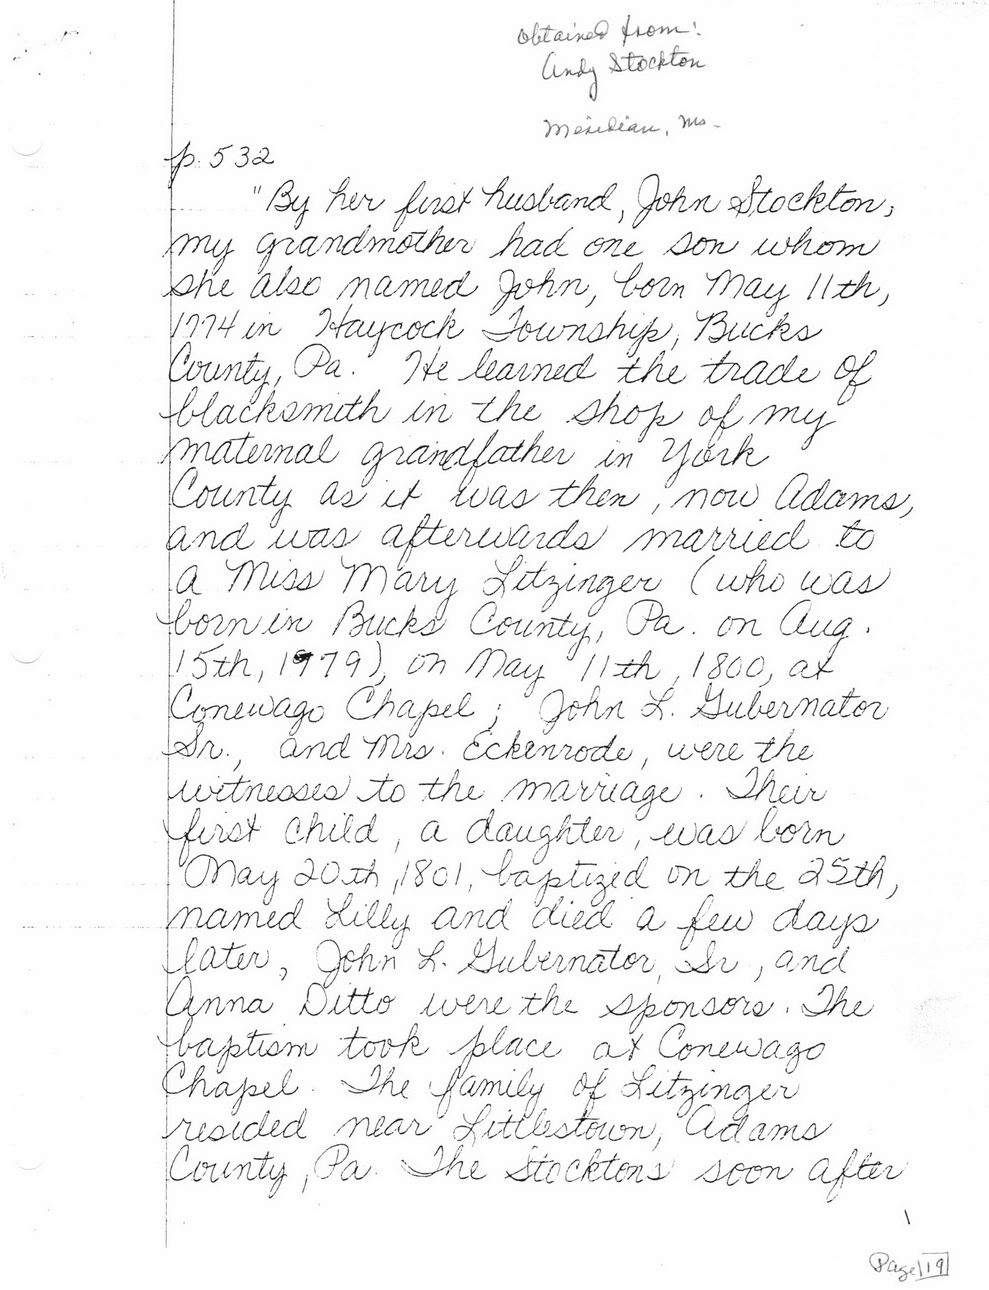 obtained from:
Andy Stockton
Meridian, Ms.
p. 532
"By her first husband, John Stockton,
my grandmother had one son whom
she also named John, born May 11th,
1774 in Haycock Township, Bucks
County, Pa. He learned the trade of
blacksmith in the shop of my
maternal grandfather in York
County as it was then, now Adams,
and was afterwards married to
a Miss Mary Litzinger (who was
born in Bucks County, Pa. on Aug.
15th, 1979), on May 11th, 1800, at
Conewago Chapel; John L. Gubernator
Sr., and Mrs. Eckenrode, were the
witnesses to the marriage. Their
first child, a daughter, was born
May 20th, 1801, baptized on the 25th,
named Lilly and died a few days
later, John L. Gubernator, Sr, and
Anna Ditto were the sponsors. The
baptism took place at Conewago
Chapel. The family of Litzinger
resided near Littlestown, Adams
County, Pa. The Stocktons soon after
1
Page 19